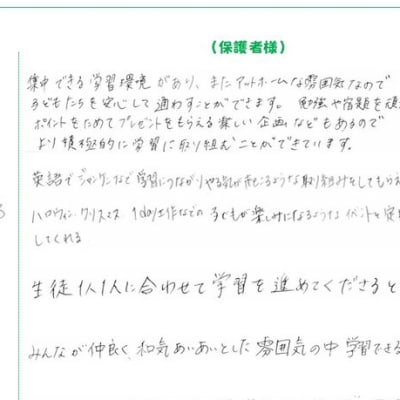 (保護者様)
集中できる学習環境があり、またアットホームな雰囲気なので
子どもたちを安心して通わすことができます。 勉強や宿題を頑
ポイントをためてプレゼントをもらえる楽しい企画などもあるので
より積極的に学習に取り組むことができています。
英語でジャンケンなど学習につながりやる気が起こるような取り組みをしてもらえ
ハロウィン、クリスマス、1day工作などの子どもが楽しみになるようなイベントを
してくれる
生徒1人1人に合わせて学習を進めてくださると
みんなが仲良く、和気あいあいとした雰囲気の中学習できる